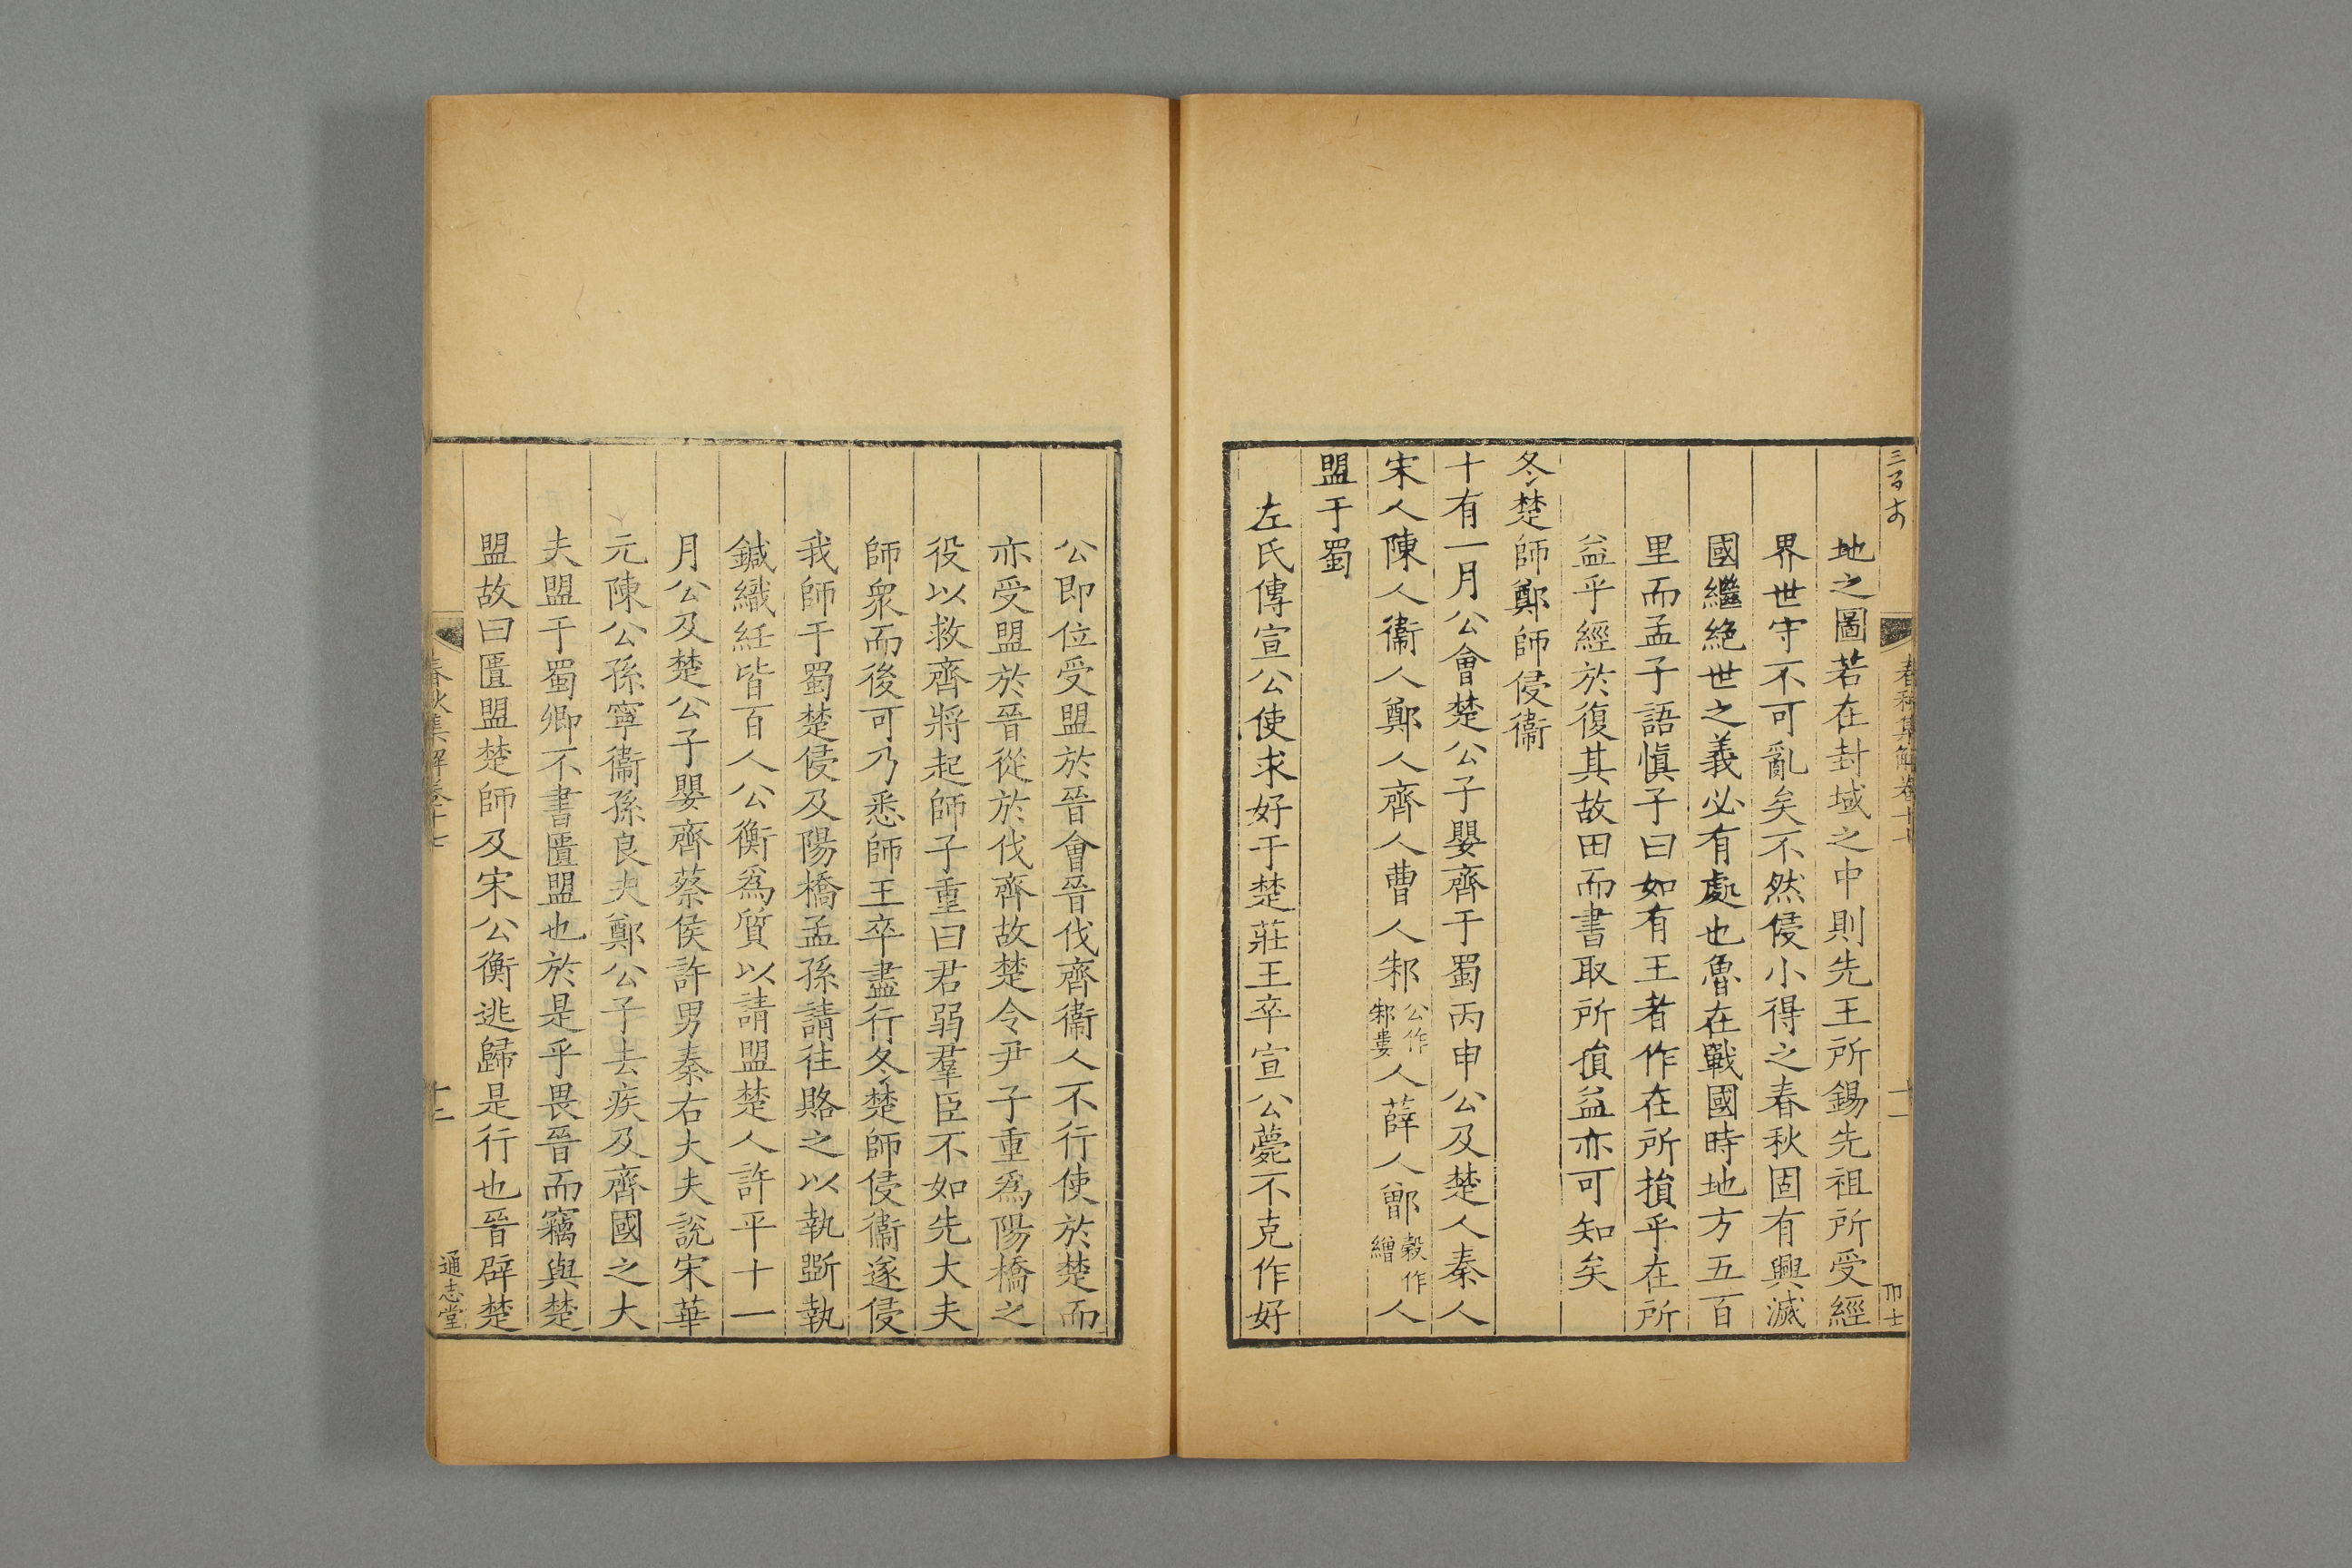 春秋集解卷十七
十一
地之圖若在封域之中則先王所錫先祖所受經
界世守不可亂矣不然侵小得之春秋固有興滅
國繼絶世之義必有處也魯在戰國時地方五百
里而孟子語慎子曰如有王者作在所損乎在所
益乎經於復其故田而書取所損益亦可知矣
冬楚師鄭師侵衞
十有一月公會楚公子嬰齊于蜀丙申公及楚人秦人
宋人陳人衞人鄭人齊人曹人邾公作邾婁人薛人鄫穀作繒人
盟于蜀
左氏傳宣公使求好于楚莊王卒宣公薨不克作好
公即位受盟於晉會晉伐齊衞人不行使於楚而
亦受盟於晉從於伐齊故楚令尹子重爲陽橋之
役以救齊將起師子重曰君弱羣臣不如先大夫
師衆而後可乃悉師王卒盡行冬楚師侵衞遂侵
我師于蜀楚侵及陽橋孟孫請往賂之以執斲執
鍼織紝皆百人公衡爲質以請盟楚人許平十一
月公及楚公子嬰齊蔡侯許男秦右大夫說宋華
元陳公孫寧衞孫良夫鄭公子去疾及齊國之大
夫盟于蜀卿不書匱盟也於是乎畏晉而竊與楚
盟故曰匱盟楚師及宋公衡逃歸是行也晉辟楚
春秋集解卷十七
十二
通志堂